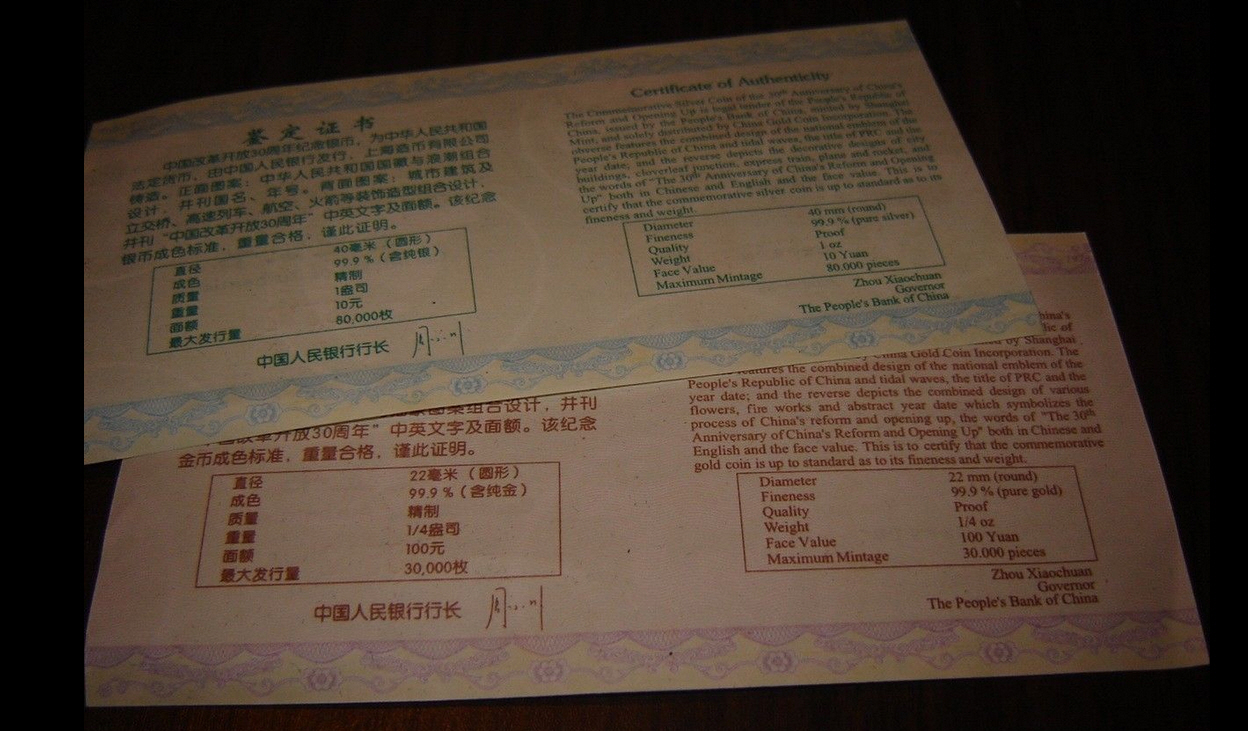 鉴定证书
中国改革开放30周年纪念银币，为中华人民共和国
法定货币，由中国人民银行发行，上海造币有限公司
铸造。正面图案：中华人民共和国国徽与浪潮组合
设计，并刊国名、年号。背面图案：城市建筑及
立交桥、高速列车、航空、火箭等装饰造型组合设计，
并刊“中国改革开放30周年”中英文字及面额。该纪念
银币成色标准，重量合格，谨此证明。
直径 40毫米（圆形）
成色 99.9％（含纯银）
质量 精制
重量 1盎司
面额 10元
最大发行量 80,000枚
中国人民银行行长
Certificate of Authenticity
The Commemorative Silver Coin of the 30th Anniversary of China's
Reform and Opening Up is legal tender of the People's Republic of
China, issued by the People's Bank of China, minted by Shanghai
Mint, and solely distributed by China Gold Coin Incorporation. The
obverse features the combined design of the national emblem of the
People's Republic of China and tidal waves, the title of PRC and the
year date; and the reverse depicts the decorative designs of city
buildings, cloverleaf junction, express train, plane and rocket, and
the words of "The 30th Anniversary of China's Reform and Opening
Up" both in Chinese and English and the face value. This is to
certify that the commemorative silver coin is up to standard as to its
fineness and weight.
Diameter 40 mm (round)
Fineness 99.9 % (pure silver)
Quality Proof
Weight 1 oz
Face Value 10 Yuan
Maximum Mintage 80.000 pieces
Zhou Xiaochuan
Governor
The People's Bank of China
图案组合设计，并刊
改革开放30周年”中英文字及面额。该纪念
金币成色标准，重量合格，谨此证明。
直径 22毫米（圆形）
成色 99.9％（含纯金）
质量 精制
重量 1/4盎司
面额 100元
最大发行量 30,000枚
中国人民银行行长
by Shanghai
China Gold Coin Incorporation. The
features the combined design of the national emblem of the
People's Republic of China and tidal waves, the title of PRC and the
year date; and the reverse depicts the combined design of various
flowers, fire works and abstract year date which symbolizes the
process of China's reform and opening up, the words of "The 30th
Anniversary of China's Reform and Opening Up" both in Chinese and
English and the face value. This is to certify that the commemorative
gold coin is up to standard as to its fineness and weight.
Diameter 22 mm (round)
Fineness 99.9 % (pure gold)
Quality Proof
Weight 1/4 oz
Face Value 100 Yuan
Maximum Mintage 30.000 pieces
Zhou Xiaochuan
Governor
The People's Bank of China